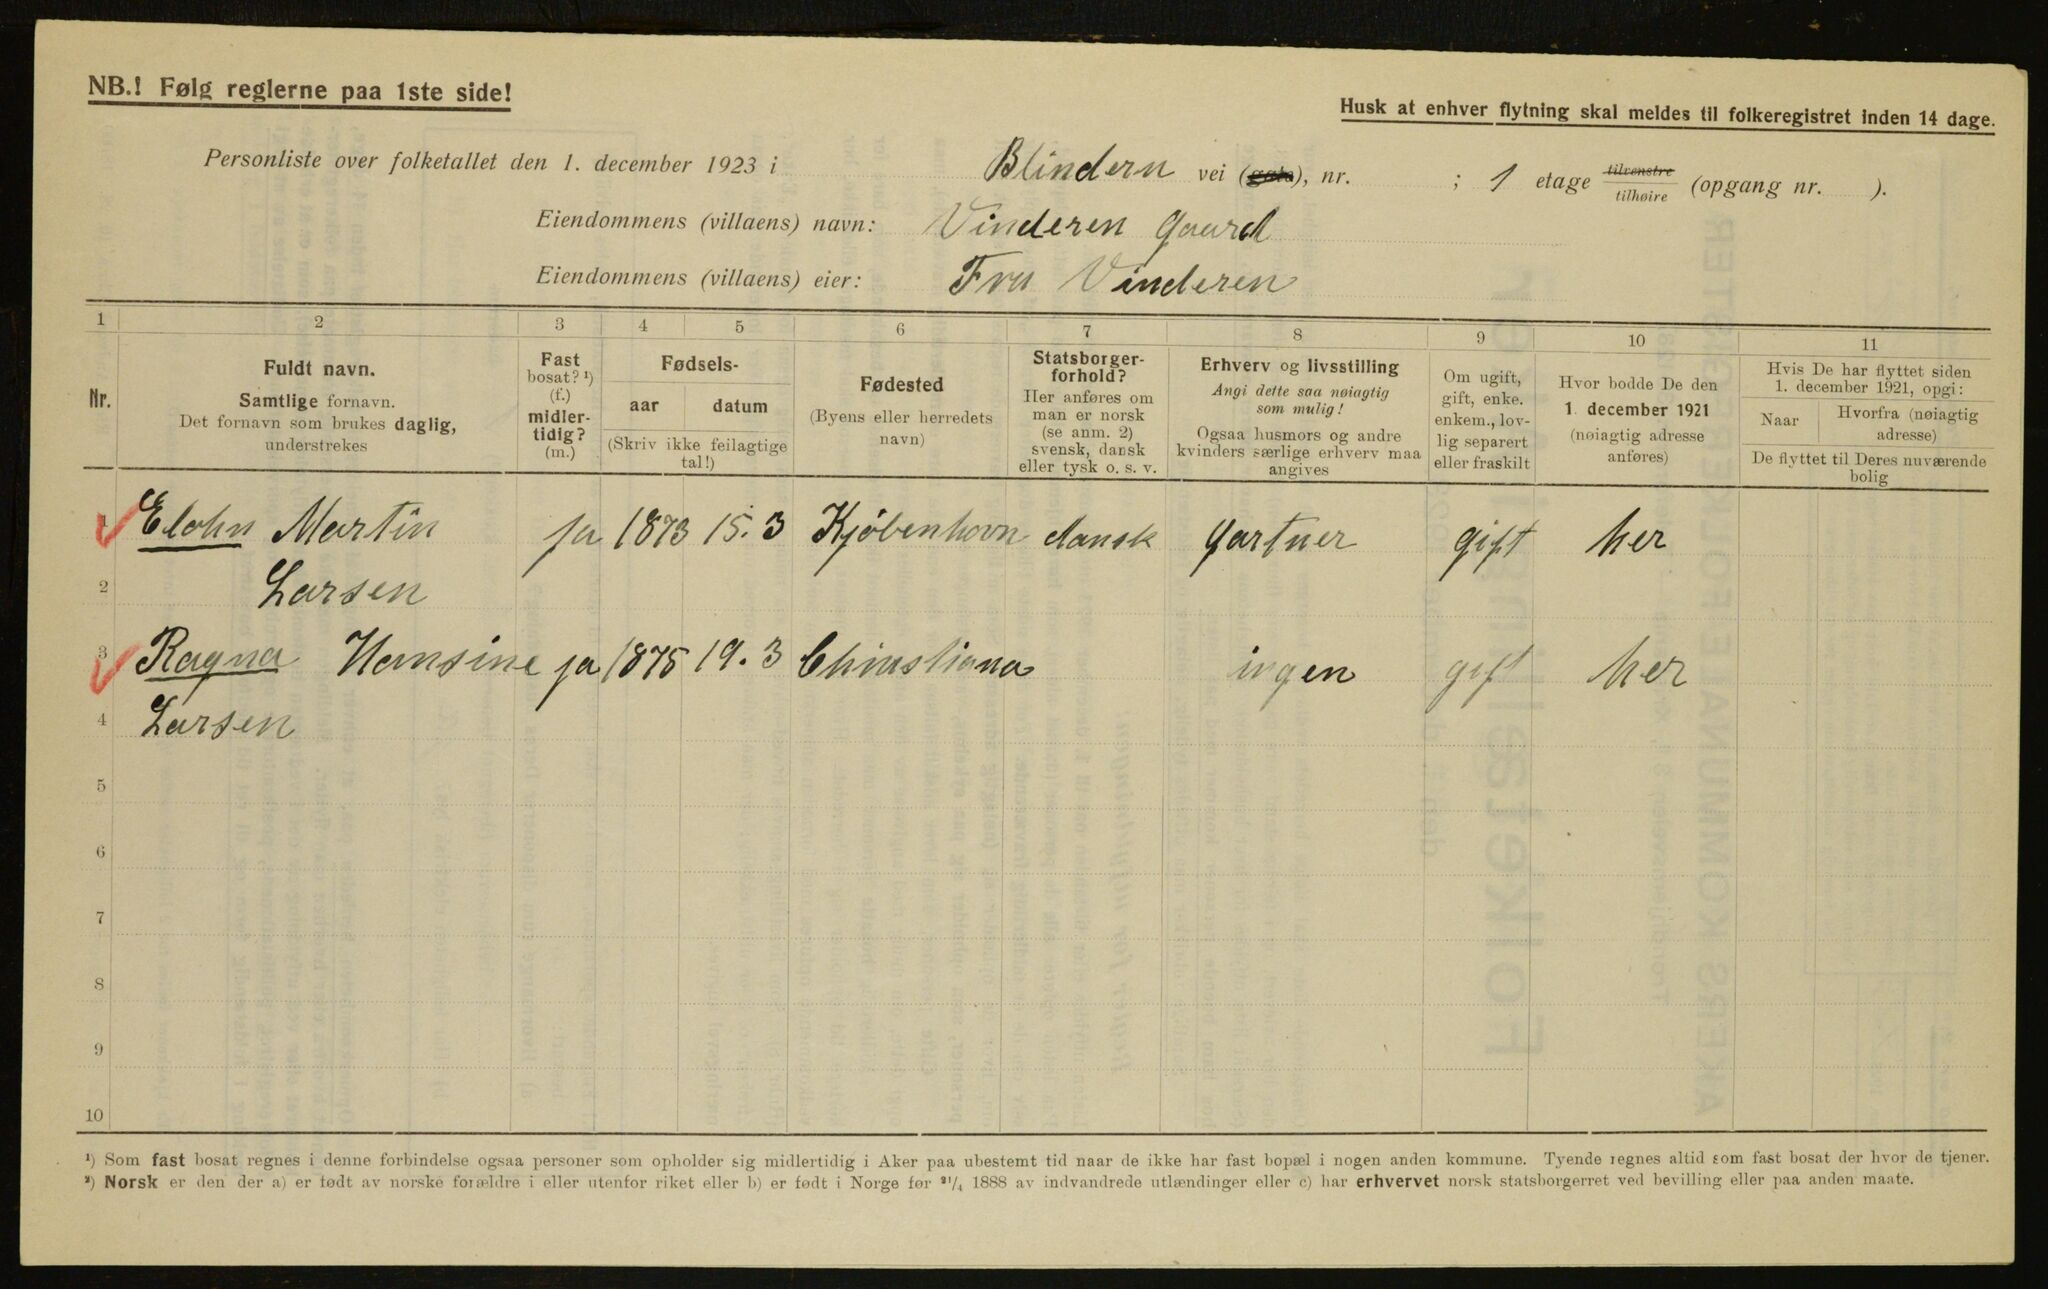 NB.! Følg reglerne paa 1ste side!
Husk at enhver flytning skal meldes til folkeregistret inden 14 dage.
Personliste over folketallet den 1. december 1923 i Blindern vei (gata), nr. ; 1 etage tilvenstre tilhøire (opgang nr. ).
Eiendommens (villaens) navn: Vinderen Gaard
Eiendommens (villaens) eier: Fru Vinderen
1 2 3 4 5 6 7 8 9 10 11
Nr.
Fuldt navn.
Samtlige fornavn.
Det fornavn som brukes daglig,
understrekes
Fast
bosat? ¹)
(f.)
midler-
tidig?
(m.)
Fødsels-
aar datum
(Skriv ikke feilagtige
tal!)
Fødested
(Byens eller herredets
navn)
Statsborger-
forhold?
Her anføres om
man er norsk
(se anm. 2)
svensk, dansk
eller tysk o. s. v.
Erhverv og livsstilling
Angi dette saa nøiagtig
som mulig!
Ogsaa husmors og andre
kvinders særlige erhverv maa
angives
Om ugift,
gift, enke.
enkem., lov-
lig separert
eller fraskilt
Hvor bodde De den
1. december 1921
(nøiagtig adresse
anføres)
Hvis De har flyttet siden
1. december 1921, opgi:
Naar
Hvorfra (nøiagtig
adresse)
De flyttet til Deres nuværende
bolig
1 Elohn Martin ja 1873 15.3 Kjøbenhavn dansk Gartner gift her
2 Larsen
3 Ragna Hansine ja 1875 19.3 Christiana ingen gift her
4 Larsen
5
6
7
8
9
10
¹) Som fast bosat regnes i denne forbindelse ogsaa personer som opholder sig midlertidig i Aker paa ubestemt tid naar de ikke har fast bopæl i nogen anden kommune. Tyende regnes altid som fast bosat der hvor de tjener.
²) Norsk er den der a) er født av norske forældre i eller utenfor riket eller b) er født i Norge før ²¹/₄ 1888 av indvandrede utlændinger eller c) har erhvervet norsk statsborgerret ved bevilling eller paa anden maate.